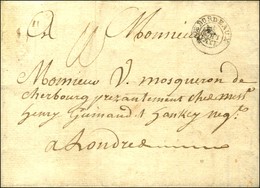 A Monsieur
BORDEAUX
Monsieur V. mosqueron de
cherbourg prezantement ches Mess.rs
henry Guinaud & hankey neg.ts
a Londres